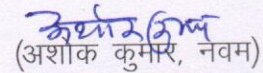 (अशोक कुमार, नवम)